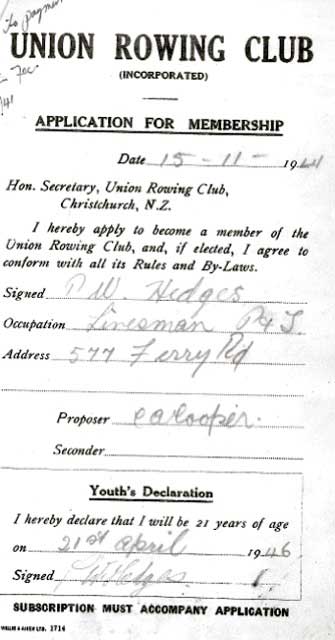 No payment
Fee.
/41
UNION ROWING CLUB
(INCORPORATED)
APPLICATION FOR MEMBERSHIP
Date 15 - 11 - 1941
Hon. Secretary, Union Rowing Club,
Christchurch, N.Z.
I hereby apply to become a member of the
Union Rowing Club, and, if elected, I agree to
conform with all its Rules and By-Laws.
Signed P W. Hedges
Occupation Linesman P & T
Address 577 Ferry Rd
Proposer C A Cooper.
Seconder
Youth's Declaration
I hereby declare that I will be 21 years of age
on 21st april 1946
Signed P W Hedges
SUBSCRIPTION MUST ACCOMPANY APPLICATION
WILLIS & AIKEN LTD. 1714